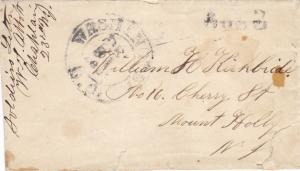 Soldiers Let
Chaplain
WASHIN
D.C.
Due 3
William H Kirkbride
No 16. Cherry St
Mount Holly
N J